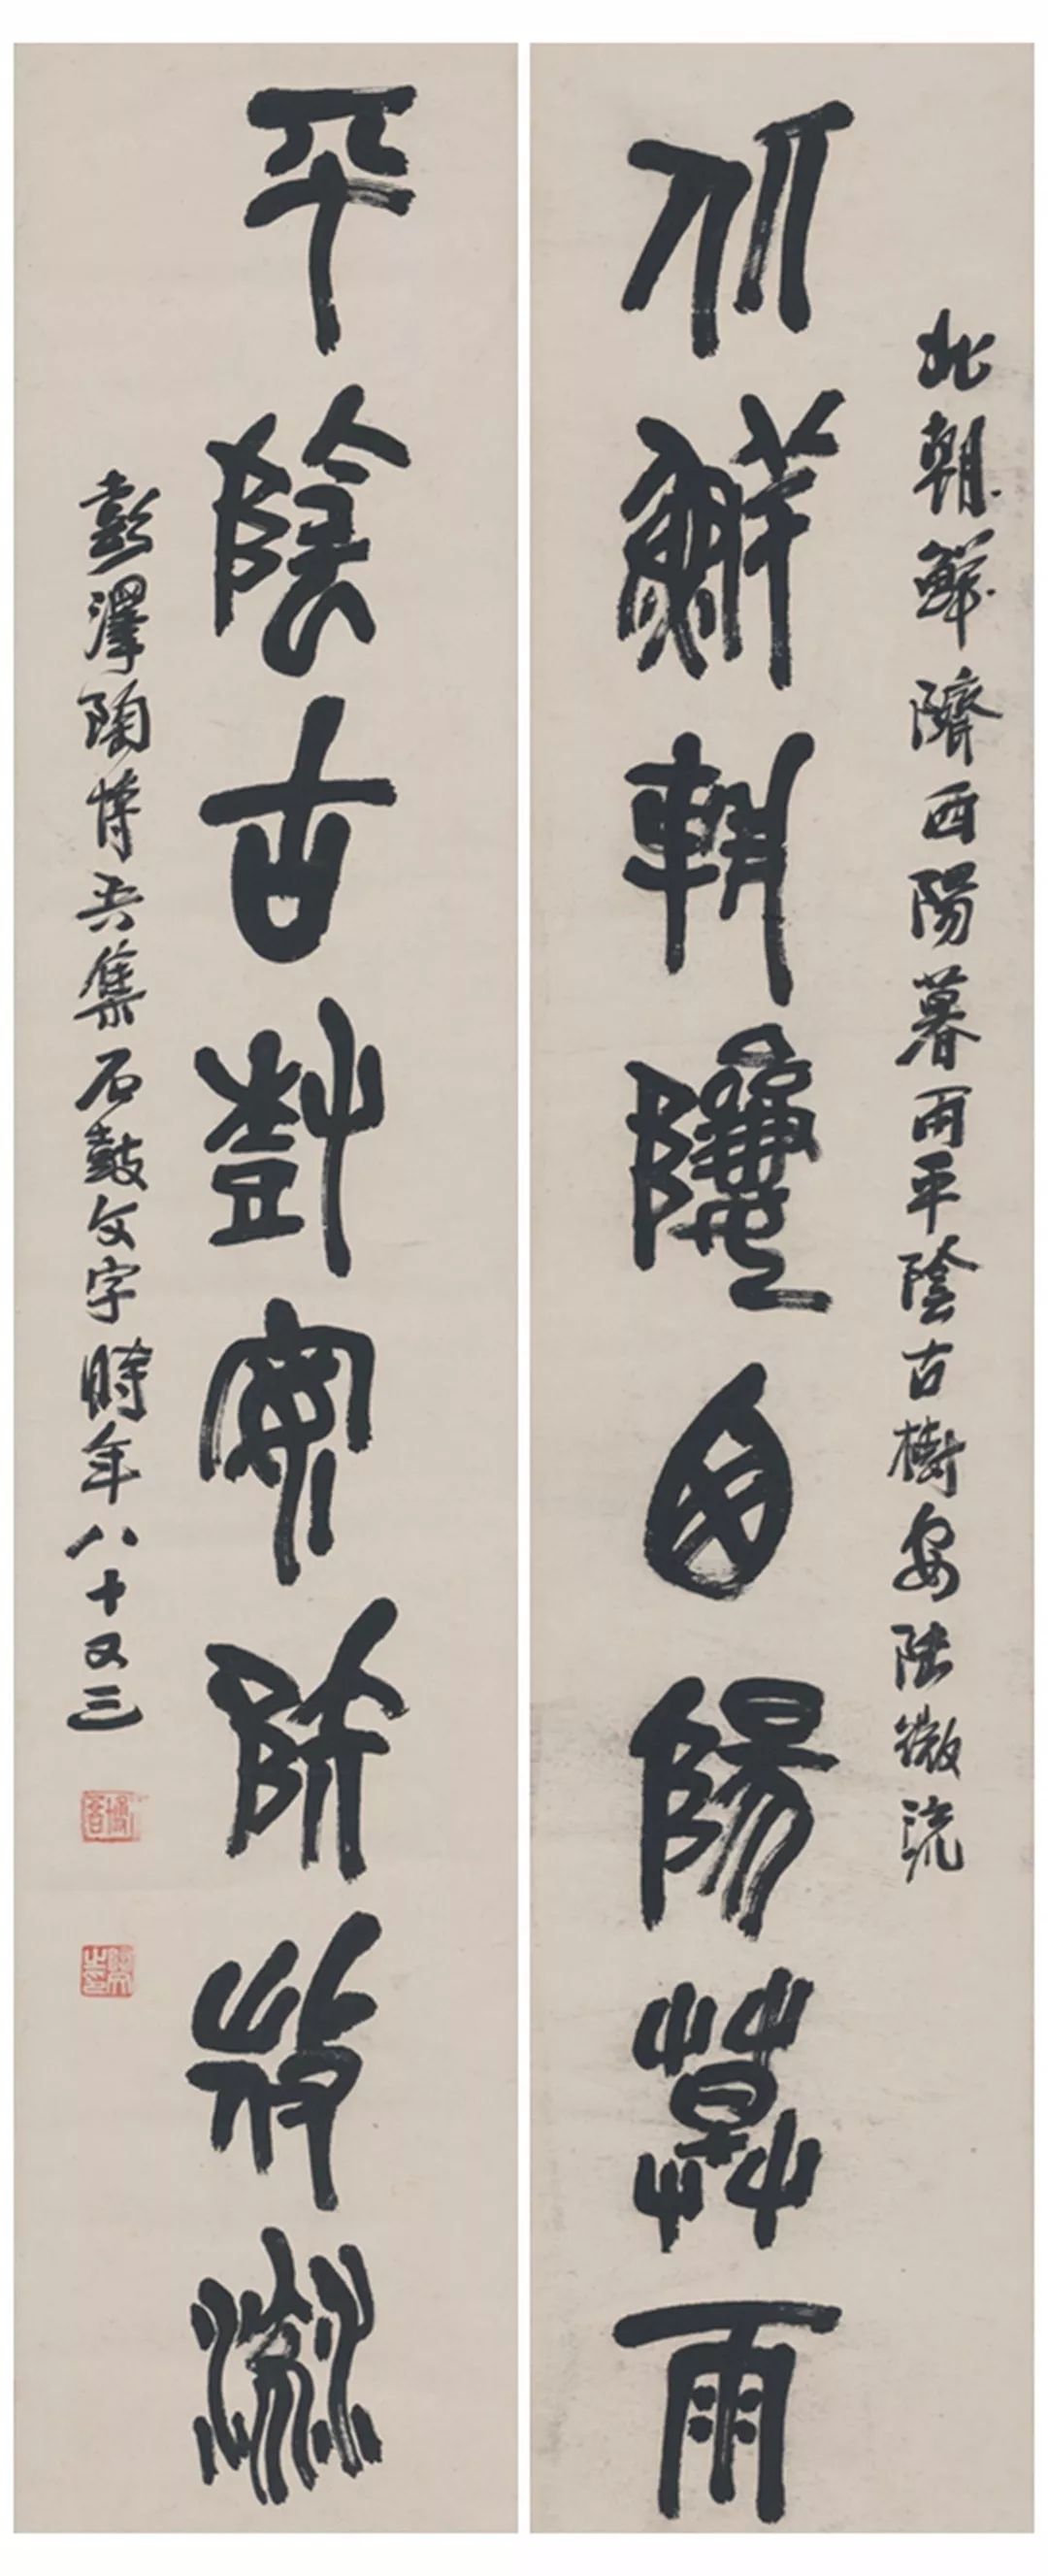 北朝鮮隮西陽暮雨平陰古樹安陸微流
北鮮朝隮西陽暮雨
平陰古樹安陸微流
彭澤陶博吾集石鼓文字時年八十又三
博吾